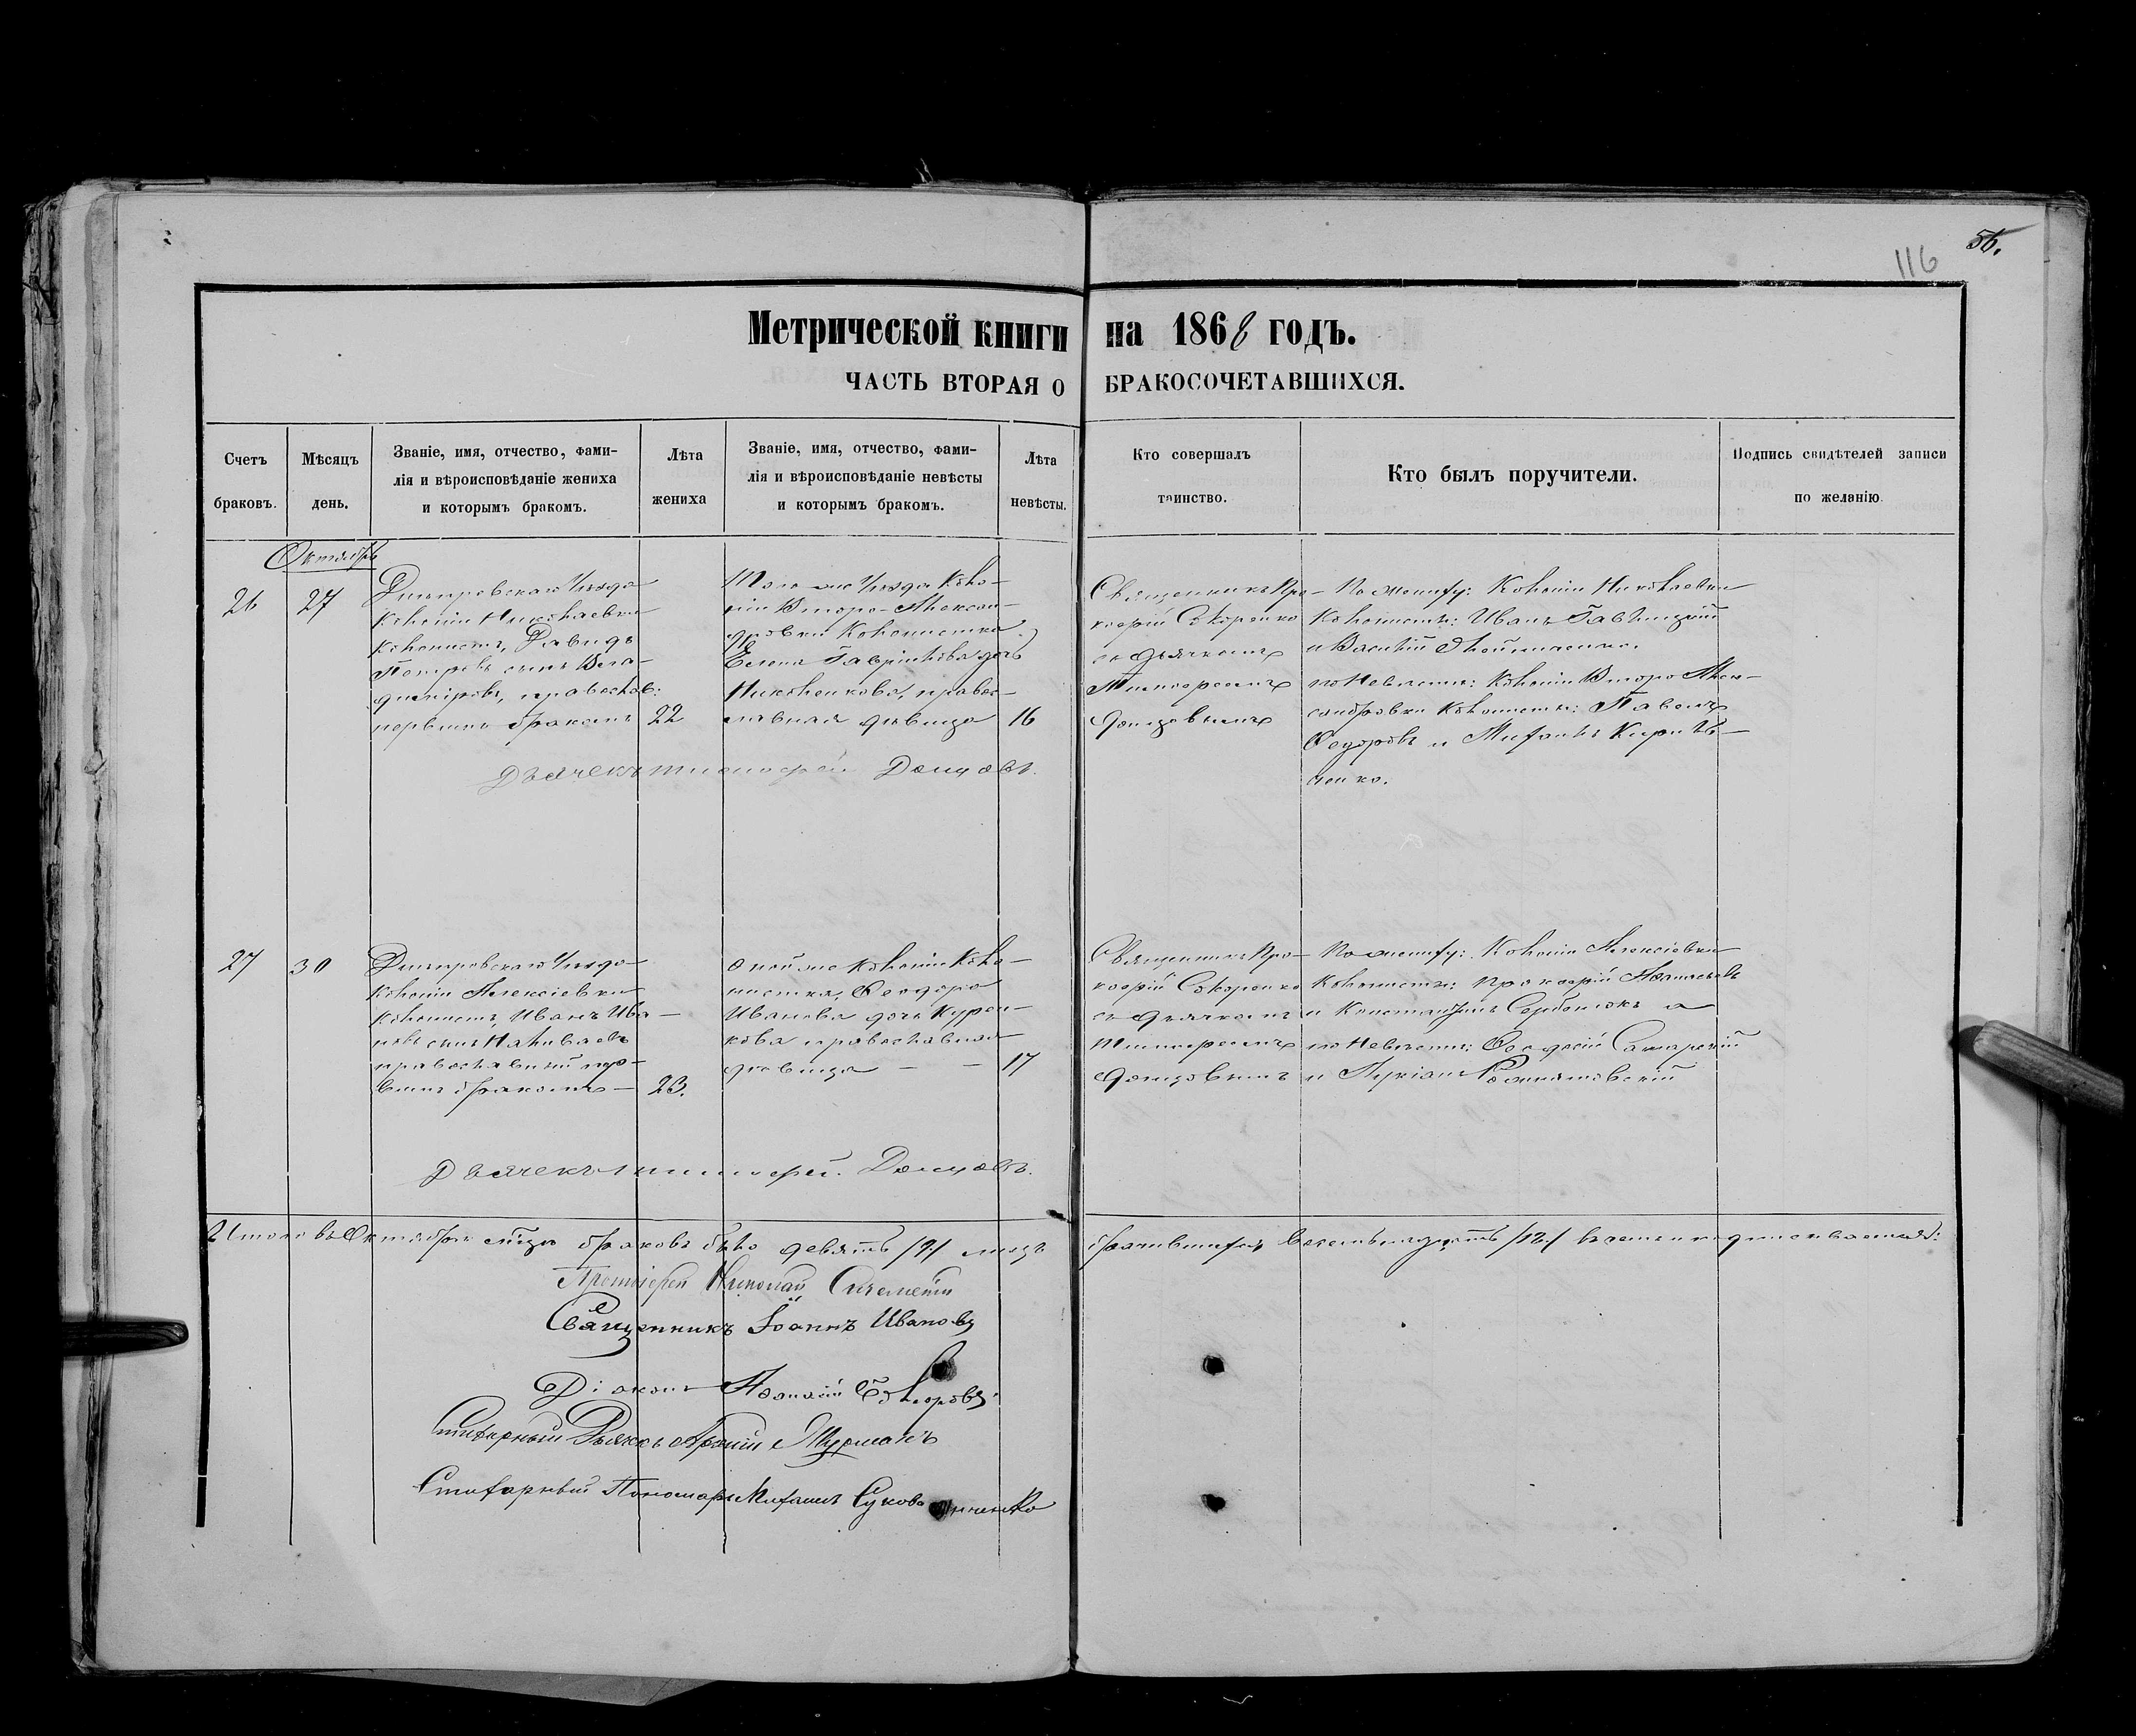 56.
116
Метрической книги на 1868 годъ.
ЧАСТЬ ВТОРАЯ О БРАКОСОЧЕТАВШИХСЯ.
Счетъ браковъ.
Мѣсяцъ день.
Званіе, имя, отчество, фами-
лія и вѣроисповѣданіе жениха
и которымъ бракомъ.
Лѣта жениха
Званіе, имя, отчество, фами-
лія и вѣроисповѣданіе невѣсты
и которымъ бракомъ.
Лѣта невѣсты.
Кто совершалъ таинство.
Кто былъ поручители.
Подпись свидѣтелей записи
по желанію.
Октябрь
26
27
Днѣпровскаго Уѣзда
Колоніи Николаевки
колонистъ, Давидъ
Петровъ сынъ
православ:
первымъ бракомъ
22
Того же Уѣзда Коло-
ніи Второ-Алексан-
дровки Колонистка
Елена Гавріилова дочь
Николенкова, правос-
лавная дѣвица
16
Священникъ Про-
кофій Скоренко
съ дьячкомъ
Тимофеемъ
Донцовымъ
По женихѣ: Колоніи Николаевки
Колонисты: Иванъ
и Василій
по Невѣстѣ: Колоніи Второ Алек-
сандровки Колонисты: Павелъ
Федоровъ и Михаилъ Кирилѣ-
ченко.
Дьячекъ Тимофей Донцовъ.
27
30
Днѣпровскаго Уѣзда
Колоніи Алексіевки
Колонистъ, Иванъ Ива-
новъ сынъ Наливаевъ
православный пер-
вымъ бракомъ
23.
Оной же Колоніи Коло-
нистка, Феодора
Иванова дочь Курен-
кова православная
дѣвица
17
Священникъ Про-
кофій Скоренко
съ дьячкомъ
Тимофеемъ
Донцовымъ
По женихѣ: Колоніи Алексіевки
Колонисты: Прокофій Аванасьевъ
и Константинъ Сербенюкъ а
по Невѣстѣ: Феодосій Самарскій
и Лукіанъ
Дьячекъ Тимофей Донцовъ.
Итого въ Октябрѣ м҃цѣ браковъ было девять /9/ лицъ
бракившихся восемьнадцать /18/ въ чемъ и подписываемся:
Протоіерей Николай
Священникъ Іоаннъ Ивановъ
Діаконъ Аѳанасій
Стихарный Дьякъ
Стихарный Пономарь Михаилъ